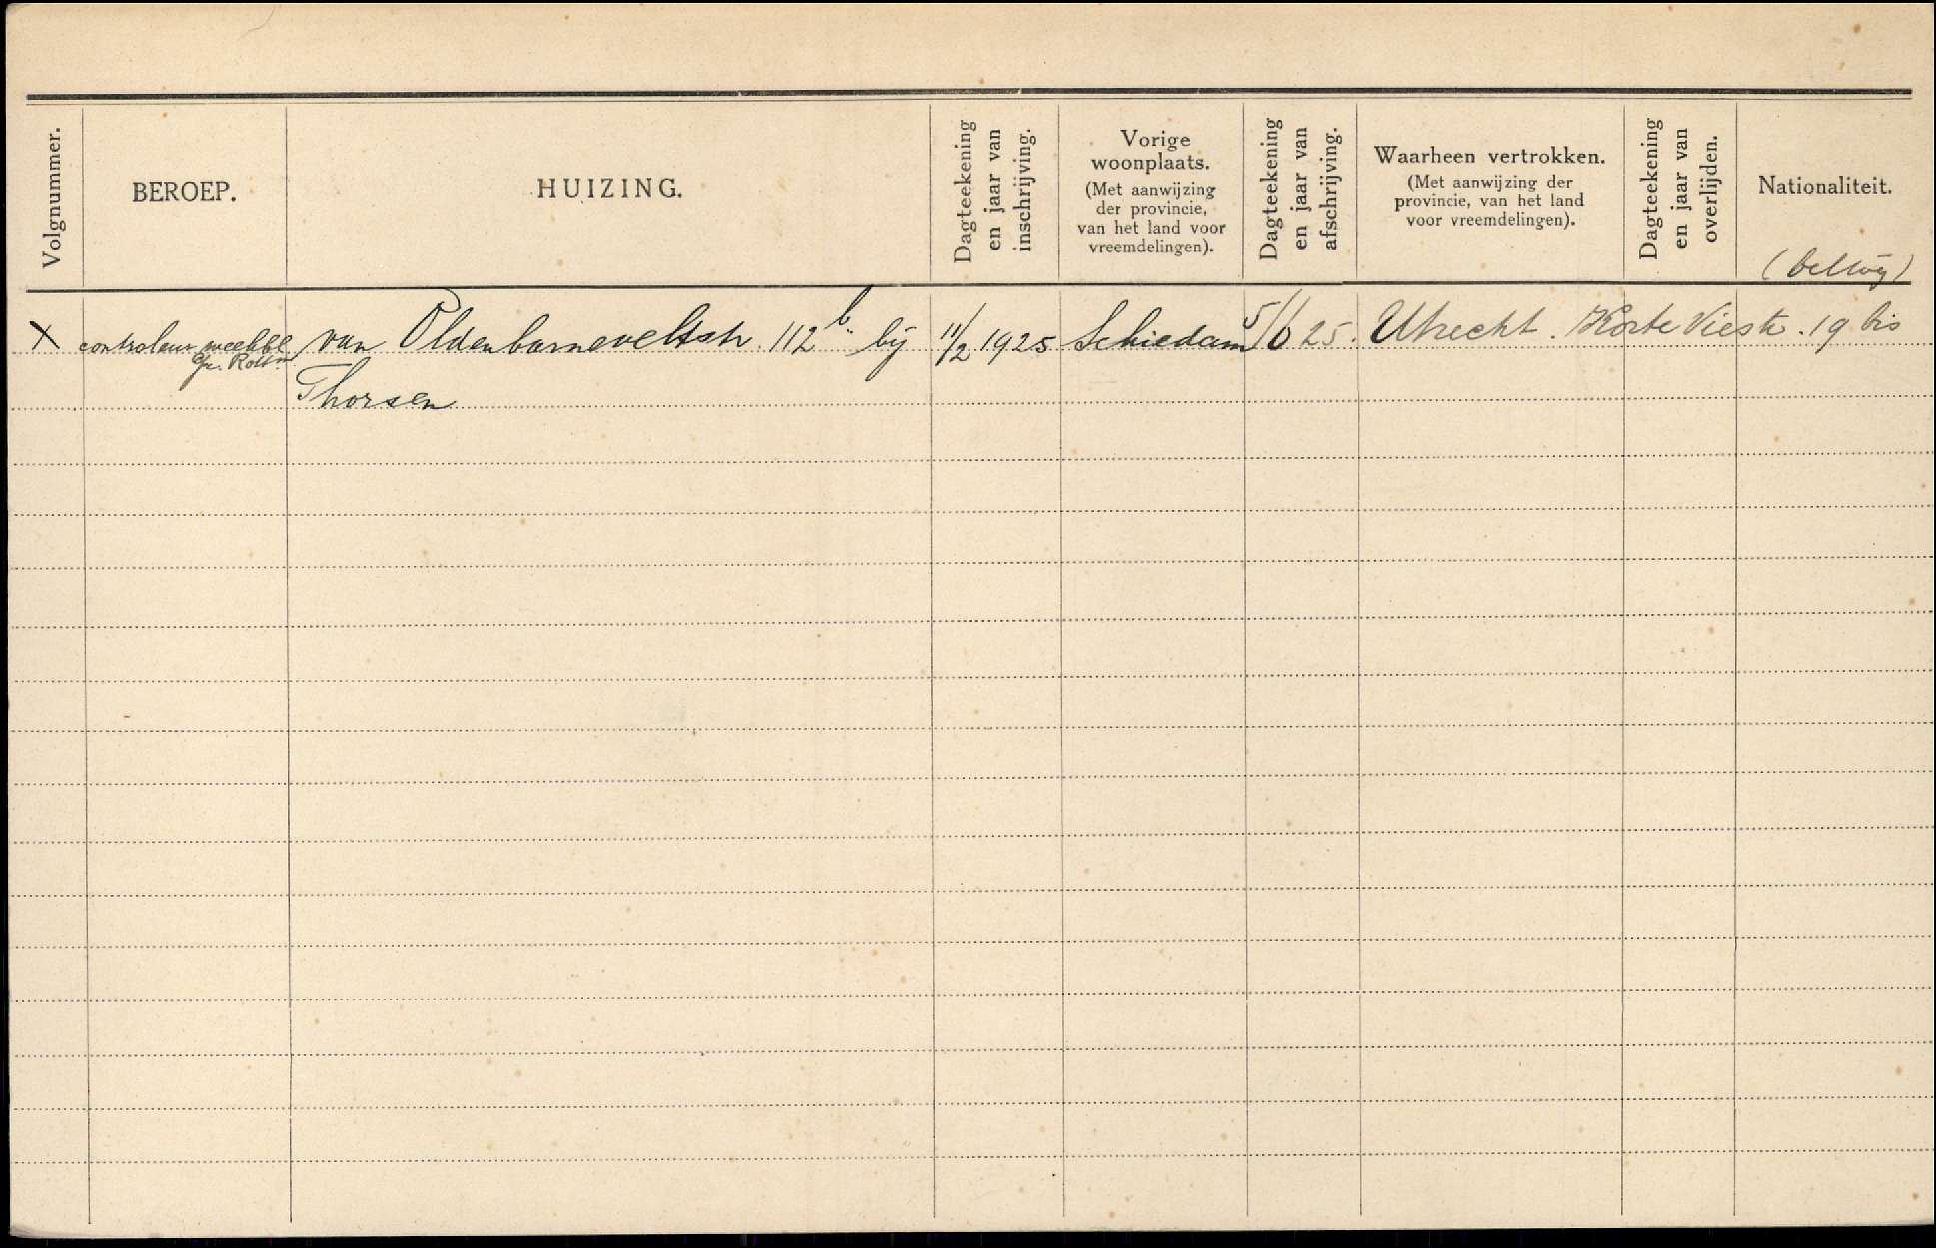 Volgnummer.
BEROEP.
HUIZING.
Dagteekening
en jaar van
inschrijving.
Vorige
woonplaats.
(Met aanwijzing
der provincie,
van het land voor
vreemdelingen).
Dagteekening
en jaar van
afschrijving.
Waarheen vertrokken.
(Met aanwijzing der
provincie, van het land
voor vreemdelingen).
Dagteekening
en jaar van
overlijden.
Nationaliteit.
X controleur weekbl van Oldenbarneveltstr. 112 b bij 11/2 1925 Schiedam 5/6 25. Utrecht. Korte Viestr. 19 bis
Gr. Rott
Thorsen